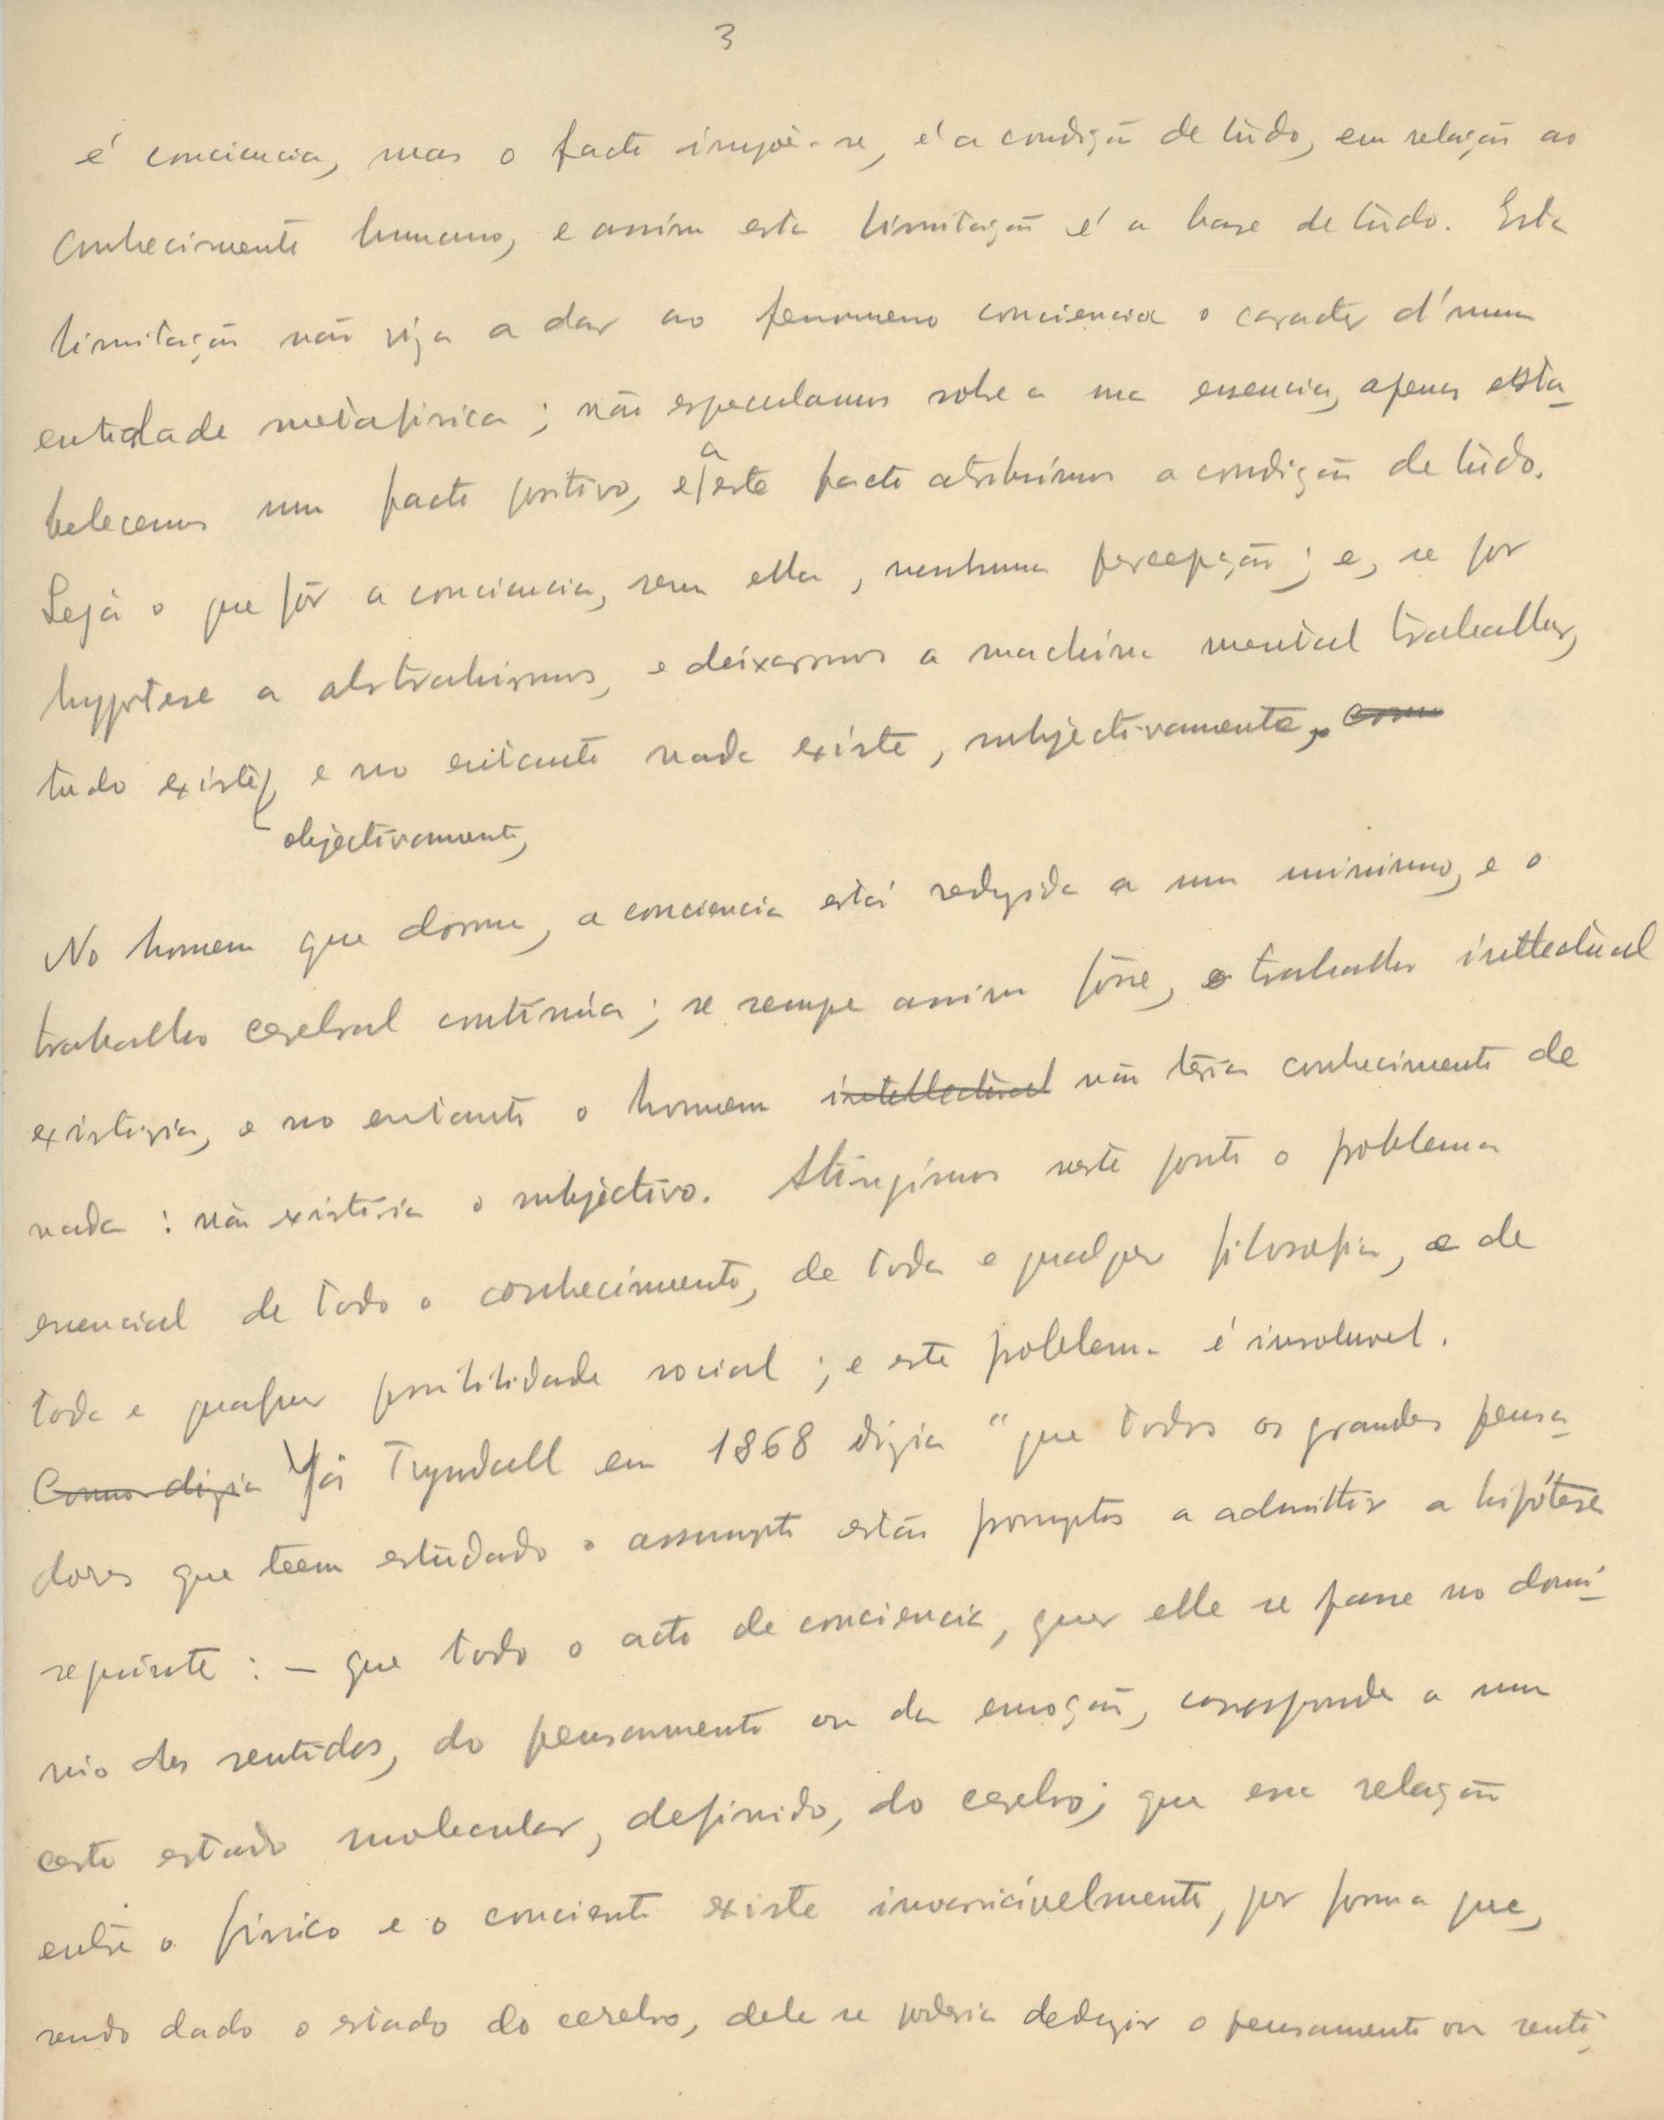 3
é conciencia, mas o facto impõe-se, é a condição de tùdo, em relação ao
conhecimento humano, e assim esta limitação é a base de tùdo. Esta
limitação não visa a dar ao fenomeno conciencia o caracter d'uma
entidade metafisica; não especulamos sobre a sua essencia, apenas esta-
belecemos um facto positivo, e a este facto atribuimos a condição de tùdo.
Sejà o que fôr a conciencia, sem ella, nenhuma percepção; e, se por
hypotese a abstrahirmos, e deixarmos a machina mental trabalhar,
tudo existe, e no entanto nada existe, subjectivamente, com
objectivamente,
No homem que dorme, a conciencia está redusida a um minimo, e o
trabalho cerebral continúa; se sempe assim fôsse, o trabalho intlectùal
existiria, e no entanto o homem intellectùal não teria conhecimento de
nada: não existiria o subjectivo. Atingimos neste ponto o problema
essencial de todo o conhecimento, de toda e qualquer filosofia, e de
toda e qualquer possibilidade social; e este problema é insoluvel.
Como dizia Já Tyndall em 1868 dizia "que todos os grandes pensa-
dores que teem estùdado o assumpto estão promptos a admittir a hipótese
seguinte: — que todo o acto de conciencia, quer elle se passe no domi-
nio dos sentidos, do pensamento ou da emoção, corresponde a um
certo estado molecular, definido, do cerebro; que essa relação
entre o fisico e o conciente existe invariávelmente, por forma que,
sendo dado o estado do cerebro, dele se poderia deduzir o pensamento ou senti-